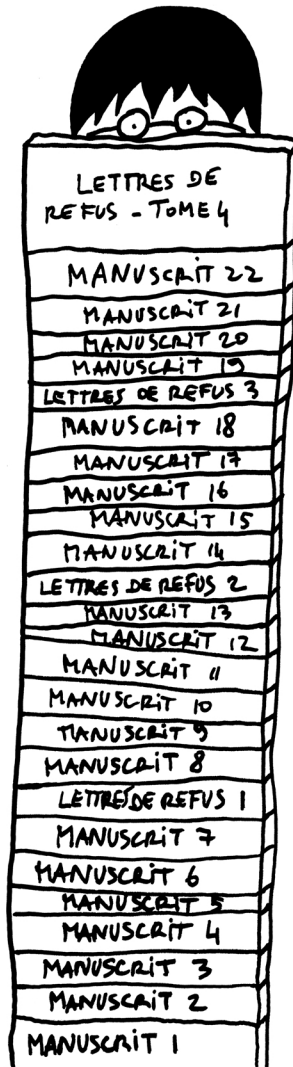 LETTRES DE
REFUS - TOME 4
MANUSCRIT 22
MANUSCRIT 21
MANUSCRIT 20
MANUSCRIT 19
LETTRES DE REFUS 3
MANUSCRIT 18
MANUSCRIT 17
MANUSCRIT 16
MANUSCRIT 15
MANUSCRIT 14
LETTRES DE REFUS 2
MANUSCRIT 13
MANUSCRIT 12
MANUSCRIT 11
MANUSCRIT 10
MANUSCRIT 9
MANUSCRIT 8
LETTRES DE REFUS 1
MANUSCRIT 7
MANUSCRIT 6
MANUSCRIT 5
MANUSCRIT 4
MANUSCRIT 3
MANUSCRIT 2
MANUSCRIT 1